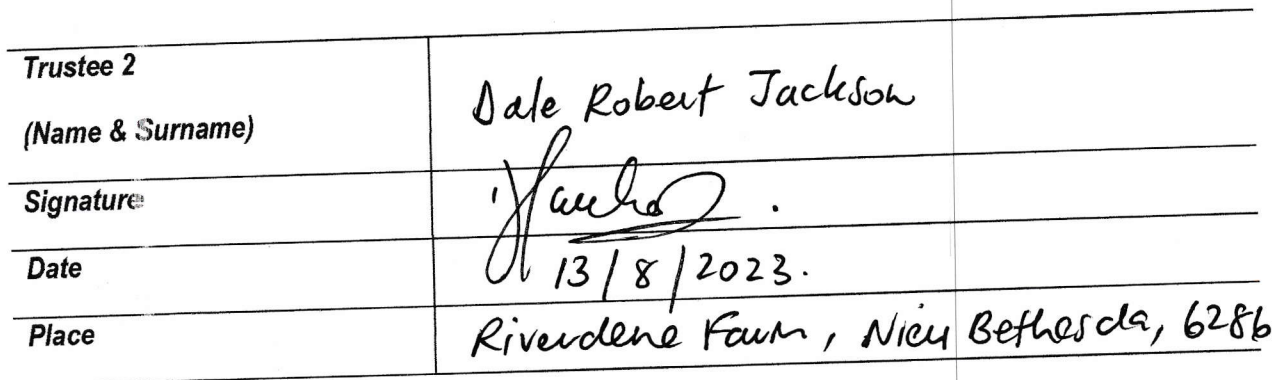 Trustee 2
(Name & Surname)
Dale Robert Jackson
Signature
Date
13/8/2023.
Place
Riverdene Farm, Nieu Bethesda, 6286